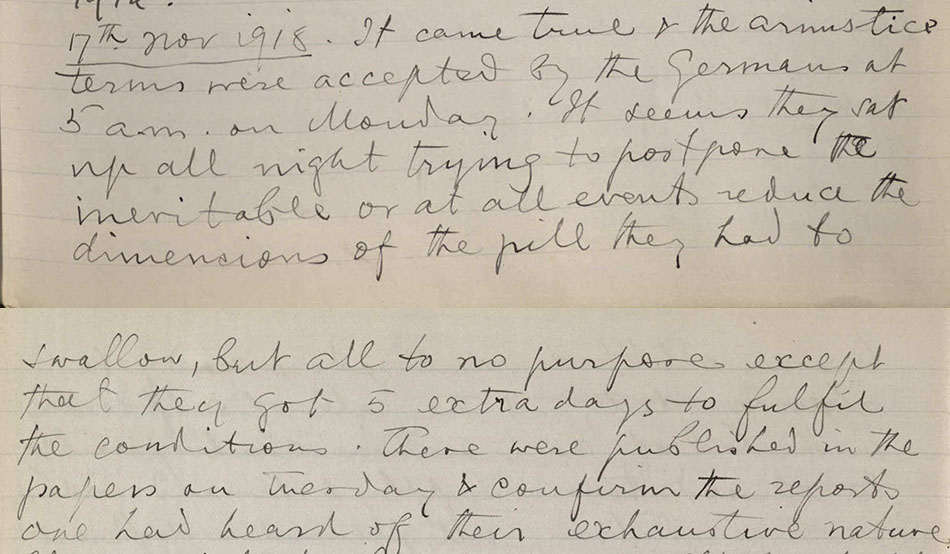 17th Nov 1918. It came true & the armistice
terms were accepted by the Germans at
5 am. on Monday. It seems they sat
up all night trying to postpone the
inevitable or at all events reduce the
dimensions of the pill they had to
swallow, but all to no purpose except
that they got 5 extra days to fulfil
the conditions. There were published in the
papers on Tuesday & confirm the reports
one had heard of their exhaustive nature